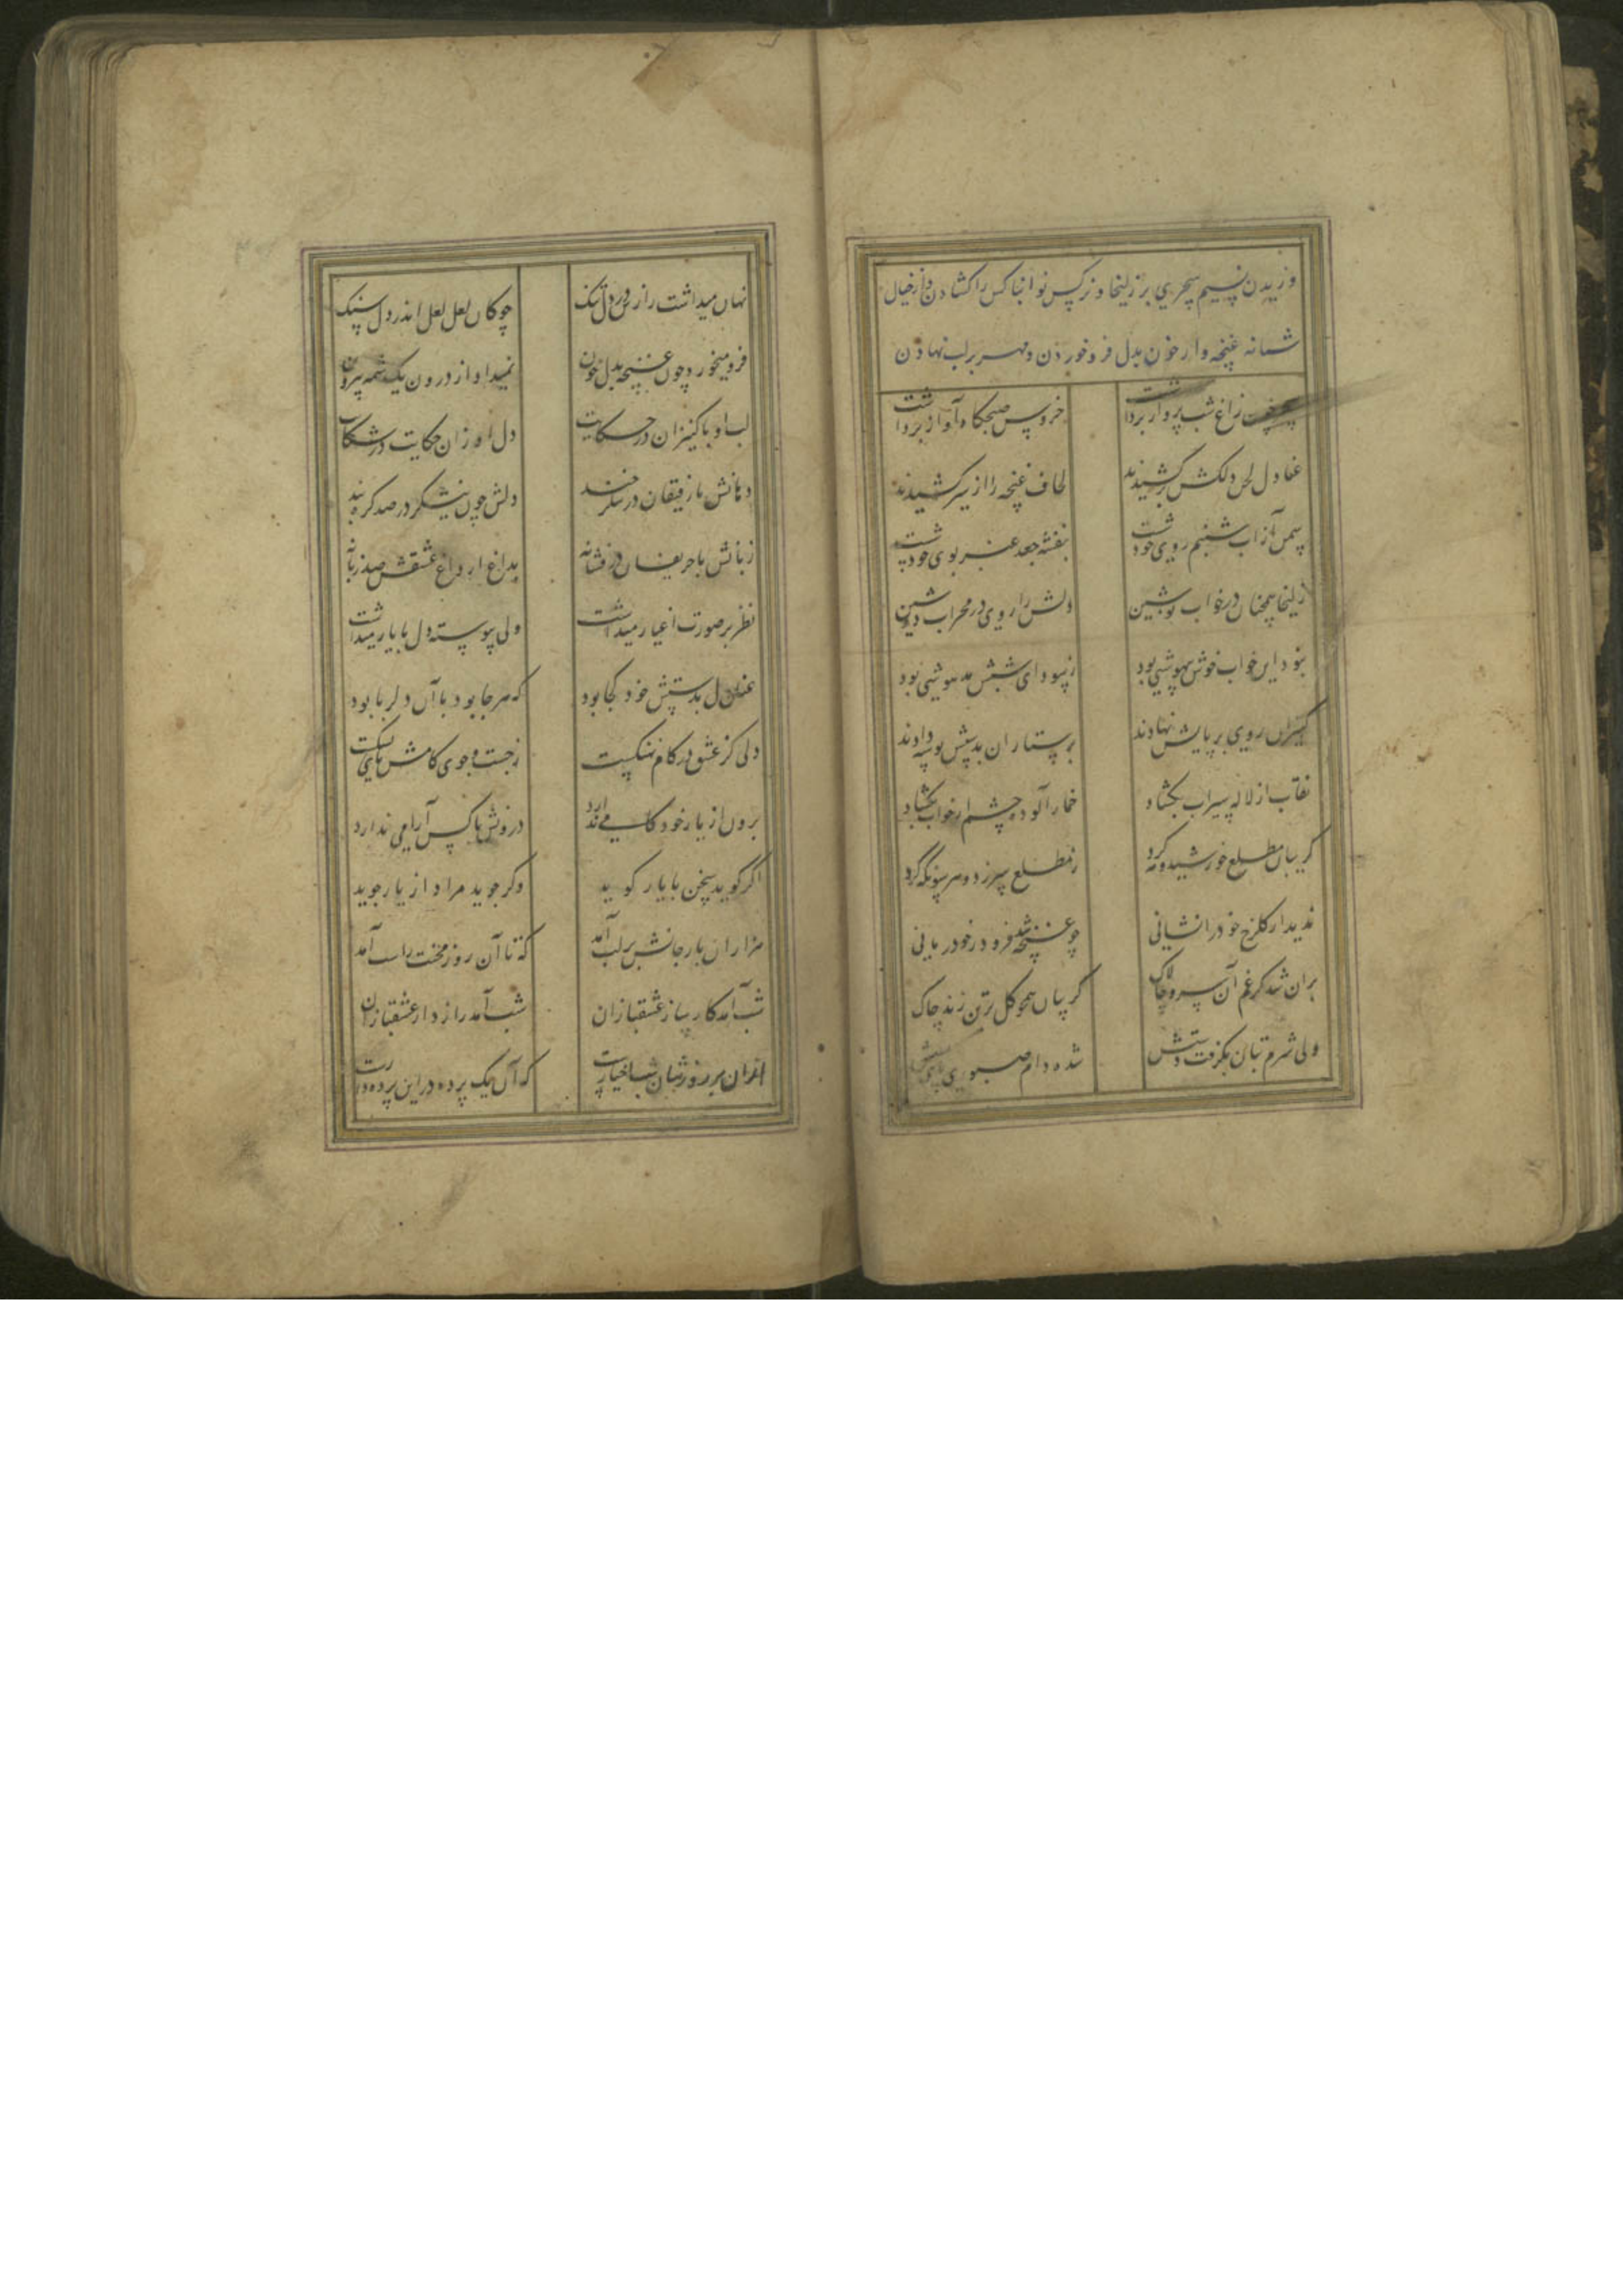 وزیدن نسیم سحری بر زلیخا و نرکس خوابناکش را کشادن و از خیال
شبانه غنچه وار خون بدل فرو خوردن و مهر بر لب نهادن
سحر چون زاغ شب پرواز برداشت خروس صبحکاه آواز برداشت
عنادل لحن دلکش برکشیدند لحاف غنچه را از سر کشیدند
سمن از آب شبنم روی خود شست بنفشه جعد عنبر بوی خود شست
زلیخا همچنان در خواب نوشین دلش را روی در محراب دوشین
نبود این خواب خوش بیهوشیی بود ز سودای شبش مدهوشیی بود
کنیزان روی بر پایش نهادند پرستاران بدستش بوسه دادند
نقاب از لاله سیراب بکشاد خمار آلوده چشم از خواب بکشاد
کریبان مطلع خورشید و مه کرد ز مطلع سر زد و هر سو نکه کرد
ندید از کلرخ خود را نشانی چو غنچه شد فرو در خود زمانی
بران شد کز غم آن سرو چالاک کریبان همچو کل بر تن زند چاک
ولی شرم کسان بکرفت دستش شده دام صبوری پای بستش
نهان میداشت رازش در دل تنک چو کان لعل لعل اندر دل سنک
فرو میخورد چون غنچه بدل خون نمیداد از درون یک شمه بیرون
لب او با کنیزان در حکایت دل او زان حکایت در شکایت
دهانش با رفیقان در شکر خند دلش چون نیشکر در صد کره بند
زبانش با حریفان در فسانه بدل از داغ عشقش صد زبانه
نظر بر صورت اغیار میداشت ولی پیوسته دل با یار میداشت
عنان دل بدستش خود کجا بود که هر جا بود با آن دلربا بود
دلی کز عشق در کام نهنکیست ز جست و جوی کامش پای لنکیست
برون از یار خود کامی ندارد درونش با کس آرامی ندارد
اکر کوید سخن با یار کوید وکر جوید مراد از یار جوید
هزاران بار جانش بر لب آمد که تا آن روز محنت را شب آمد
شب آمد کار ساز عشقبازان شب آمد رازدار عشقبازان
ازان بر روزشان شب اختیارست که آن یک پرده در این پرده دارست